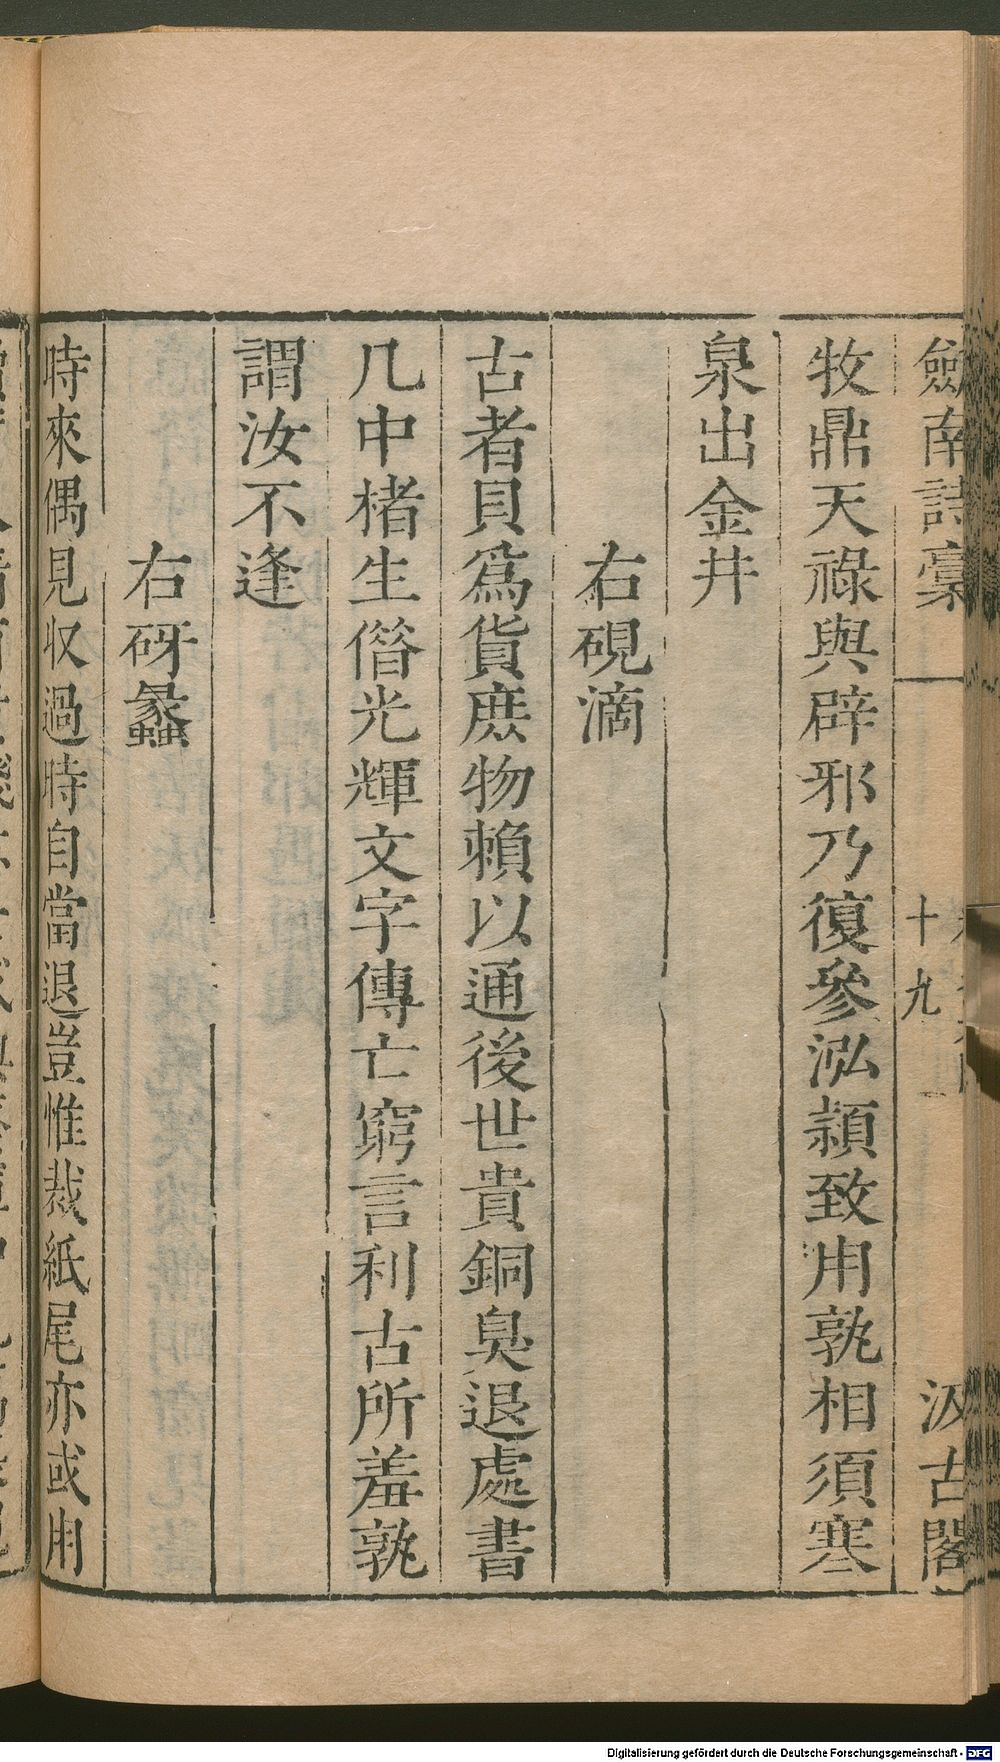 劒南詩稾
十九
汲古閣
牧鼎天祿與辟邪乃復參泓頴致用孰相須寒
泉出金井
右硯滴
古者貝爲貨庶物賴以通後世貴銅臭退處書
几中楮生僭光輝文字傳亡窮言利古所羞孰
謂汝不逢
右砑蠡
時來偶見收過時自當退豈惟裁紙尾亦或用
Digitalisierung gefördert durch die Deutsche Forschungsgemeinschaft - DFG